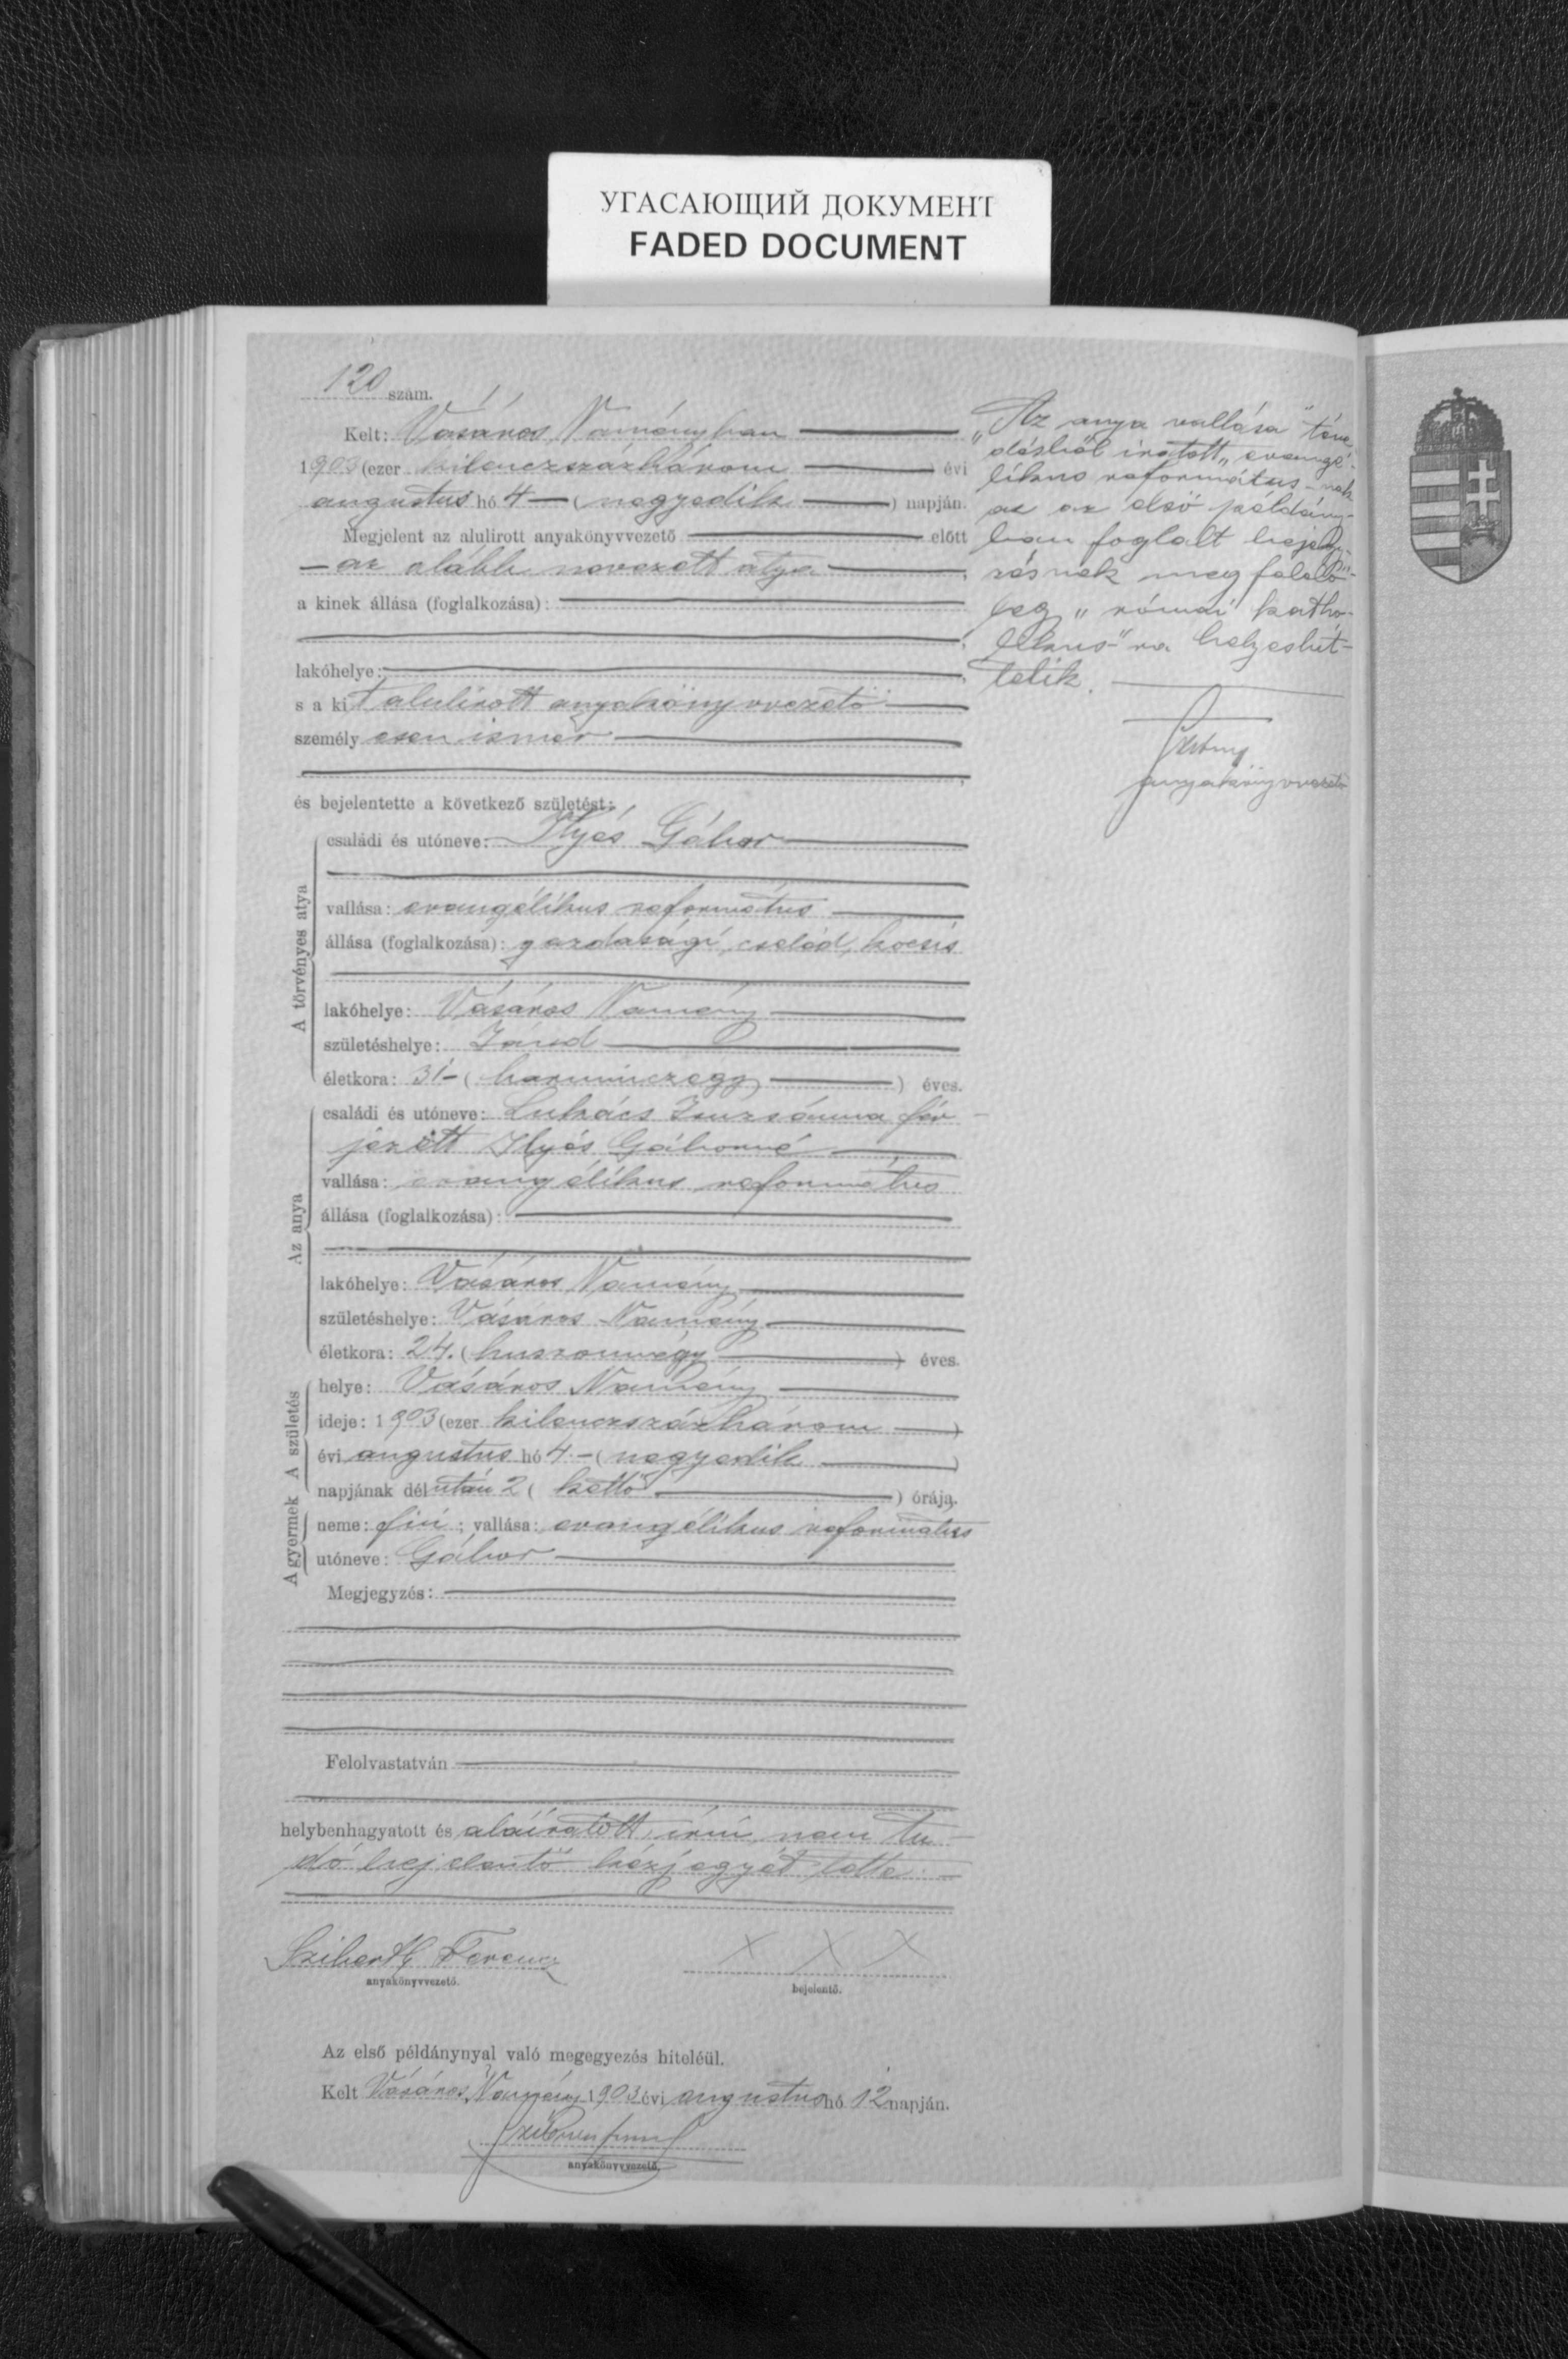 УГАСАЮЩИЙ ДОКУМЕНТ
FADED DOCUMENT
120 szám.
Kelt: Vásáros Naményban
1903 (ezer kilenczszázhárom ) évi
augusztus hó 4 (negyedik ) napján.
Megjelent az alulirott anyakönyvvezető előtt
az alább nevezett atya
a kinek állása (foglalkozása):
lakóhelye:
s a kit alulirott anyakönyvvezető
személyesen ismer
és bejelentette a következő születést:
A törvényes atya
családi és utóneve: Ilyés Gábor
vallása: evangélikus református
állása (foglalkozása): gazdasági cseléd, kocsis
lakóhelye: Vásáros Namény
születéshelye: Jánd
életkora: 31 (harminczegy ) éves.
Az anya
családi és utóneve: Lukács Zsuzsánna fér-
jezett Ilyés Gáborné
vallása: evangélikus református
állása (foglalkozása):
lakóhelye: Vásáros Namény
születéshelye: Vásáros Namény
életkora: 24. (huszonnégy ) éves.
A születés
helye: Vásáros Namény
ideje: 1903 (ezer kilenczszázhárom )
évi augusztus hó 4 (negyedik )
napjának délután 2 ( kettő ) órája.
A gyermek
neme: fiú ; vallása: evangélikus református
utóneve: Gábor
Megjegyzés:
Felolvastatván
helybenhagyatott és aláiratott, irni nem tu-
dó bejelentő kézjegyét tette
Sziberth Ferencz
anyakönyvvezető.
X X X
bejelentő.
Az első példánynyal való megegyezés hiteléül.
Kelt Vásáros Namény 1903 évi augusztus hó 12 napján.
anyakönyvvezető.
„Az anya vallása" téve-
désből iratott „evangé-
likus református-nak
az az első példány-
ban foglalt bejegy-
zésnek megfelelő-
leg „római katho-
likus"-ra helyesbít-
tetik.
anyakönyvvezető